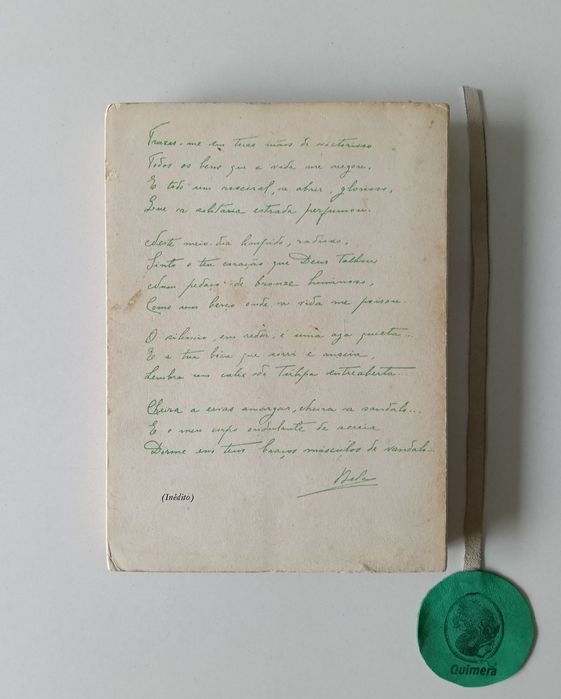 Trazes-me em tuas mãos de victorioso
Todos os bens que a vida me negou,
E todo um roseiral, a abrir, glorioso,
Que a solitária estrada perfumou.
Neste meio-dia limpido, radioso,
Sinto o teu coração que Deus talhou
Num pedaço de bronze luminoso,
Como um berço onde a vida me poisou.
O silencio, em redor, é uma aza quieta...
E a tua bôca que sorri e anseia,
Lembra um calix de Tulipa entreaberta...
Cheira a ervas amargas, cheira a sandalo...
E o meu corpo ondulante de sereia
Dorme em teus braços másculos de vandalo...
Bela
(Inédito)
Quimera